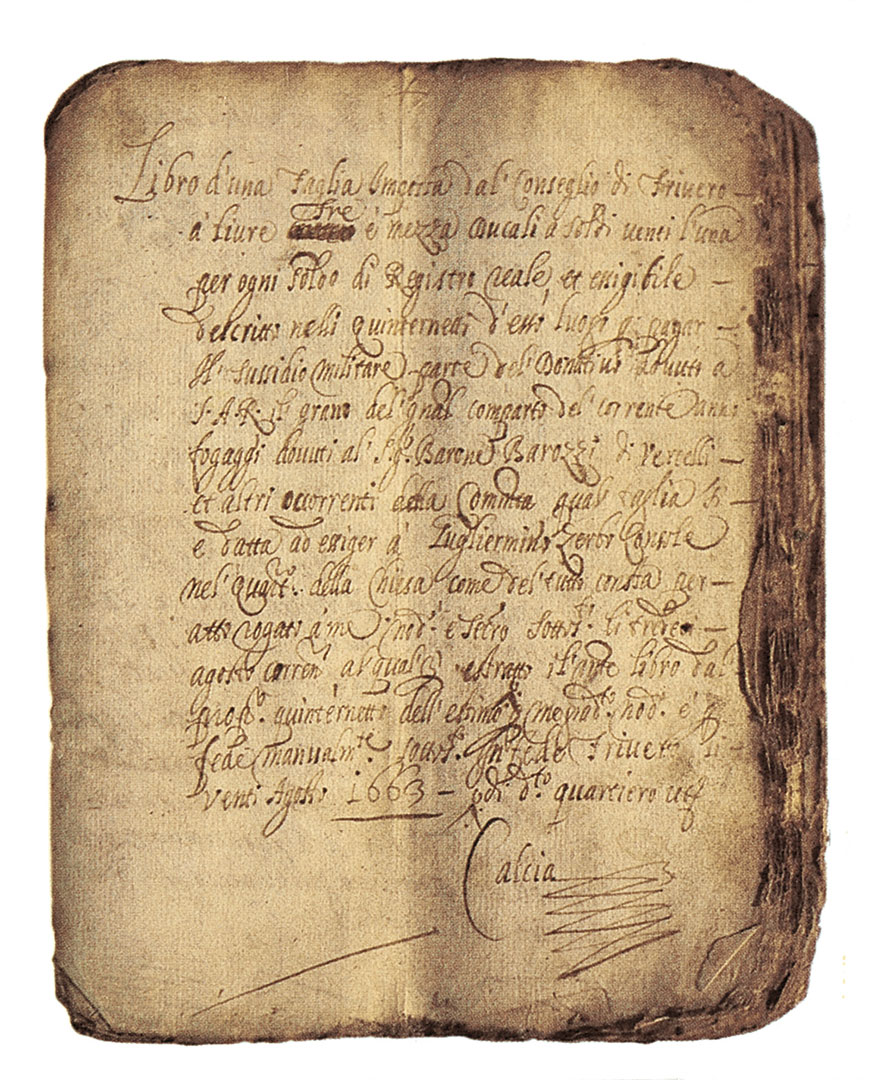 Libro d'una Taglia Imposta dal' Conseglio di Trivero
Tre
à livre è mezza Ducali a Soldi venti l'una
per ogni Soldo di Registro reale et exigibile
descritto nelli quinternetti d'essi luoghi pagar
Il Sussidio militare parte del' Donativo dovuto a
S. A. R. il grano del' qual comparto del' corrente anno
fogaggi dovuti al' Sig.r Barone Barozzi di Vercelli
et altri occorrenti della Com̃ta qual taglia si
è datta ad exiger à Gugliermino Zerbo Console
nel' quart.o della Chiesa come del' tutto consta per
atto rogato à me nod.o è Secro Sotts.o li tredeci
agosto corren.te al qual estratto il libro dal
quinternetto dell' estimo nod.o è p
fede manualm.te Sotts.o In fede Trivero li
venti Agosto 1663 di d.to quartiero
Calcia